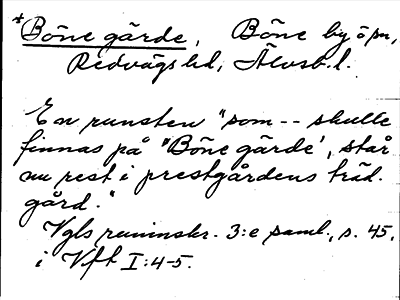 *Böne gärde, Böne by o sn,
Redvägs hd, Älvsb.l.
En runsten "som -- skulle
finnas på "Böne gärde', står
nu rest i prestgårdens träd-
gård."
Vgls runinskr. 3:e saml., s. 45,
i Vft I:4-5.